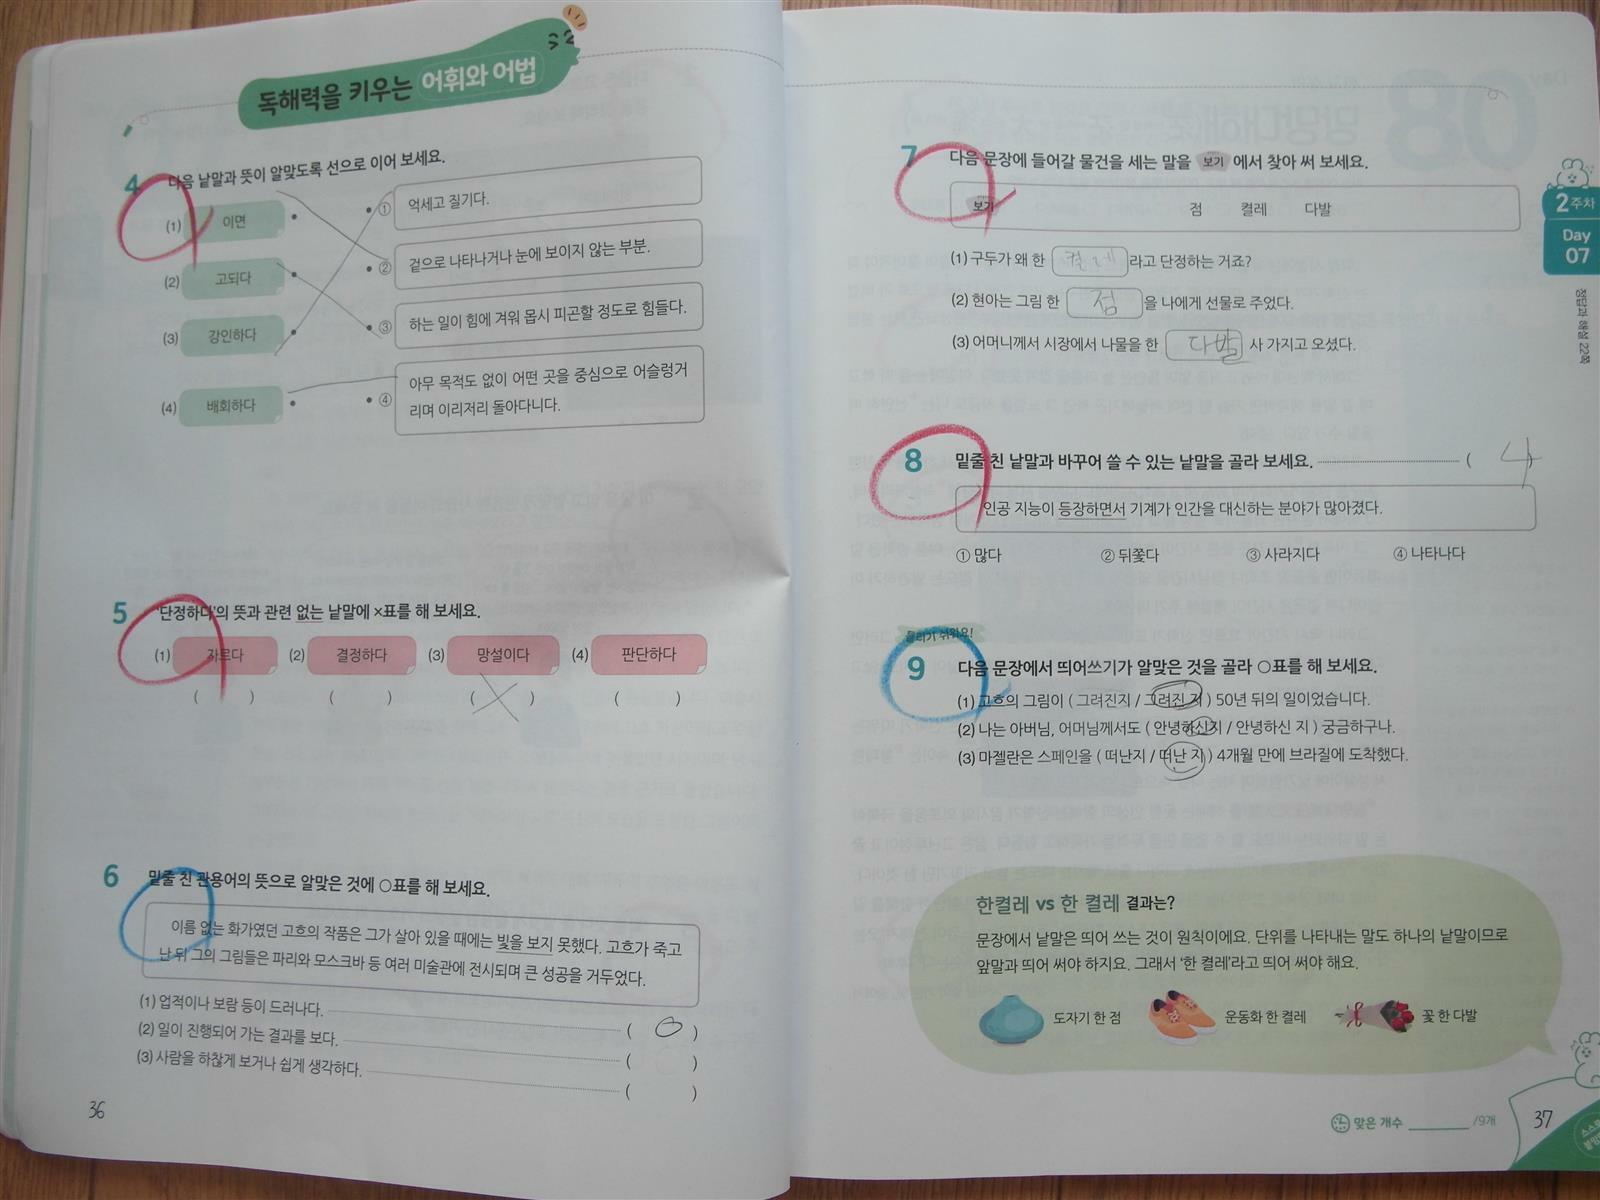 독해력을 키우는 어휘와 어법
4 다음 낱말과 뜻이 알맞도록 선으로 이어 보세요.
(1) 이면
① 억세고 질기다.
(2) 고되다
② 겉으로 나타나거나 눈에 보이지 않는 부분.
(3) 강인하다
③ 하는 일이 힘에 겨워 몹시 피곤할 정도로 힘들다.
(4) 배회하다
④ 아무 목적도 없이 어떤 곳을 중심으로 어슬렁거
리며 이리저리 돌아다니다.
5 '단정하다'의 뜻과 관련 없는 낱말에 ×표를 해 보세요.
(1) 자르다 (2) 결정하다 (3) 망설이다 (4) 판단하다
( ) ( ) ( × ) ( )
6 밑줄 친 관용어의 뜻으로 알맞은 것에 ○표를 해 보세요.
이름 없는 화가였던 고흐의 작품은 그가 살아 있을 때에는 빛을 보지 못했다. 고흐가 죽고
난 뒤 그의 그림들은 파리와 모스크바 등 여러 미술관에 전시되며 큰 성공을 거두었다.
(1) 업적이나 보람 등이 드러나다. ( ○ )
(2) 일이 진행되어 가는 결과를 보다. ( )
(3) 사람을 하찮게 보거나 쉽게 생각하다. ( )
36
7 다음 문장에 들어갈 물건을 세는 말을 보기 에서 찾아 써 보세요.
보기 점 켤레 다발
(1) 구두가 왜 한 켤레 라고 단정하는 거죠?
(2) 현아는 그림 한 점 을 나에게 선물로 주었다.
(3) 어머니께서 시장에서 나물을 한 다발 사 가지고 오셨다.
8 밑줄 친 낱말과 바꾸어 쓸 수 있는 낱말을 골라 보세요. ( 4 )
인공 지능이 등장하면서 기계가 인간을 대신하는 분야가 많아졌다.
① 많다 ② 뒤쫓다 ③ 사라지다 ④ 나타나다
틀리기 쉬워요!
9 다음 문장에서 띄어쓰기가 알맞은 것을 골라 ○표를 해 보세요.
(1) 고흐의 그림이 ( 그려진지 / 그려진 지 ) 50년 뒤의 일이었습니다.
(2) 나는 아버님, 어머님께서도 ( 안녕하신지 / 안녕하신 지 ) 궁금하구나.
(3) 마젤란은 스페인을 ( 떠난지 / 떠난 지 ) 4개월 만에 브라질에 도착했다.
한켤레 vs 한 켤레 결과는?
문장에서 낱말은 띄어 쓰는 것이 원칙이에요. 단위를 나타내는 말도 하나의 낱말이므로
앞말과 띄어 써야 하지요. 그래서 '한 켤레'라고 띄어 써야 해요.
도자기 한 점 운동화 한 켤레 꽃 한 다발
맞은 개수 /9개
37
2주차
Day
07
정답과 해설 22쪽